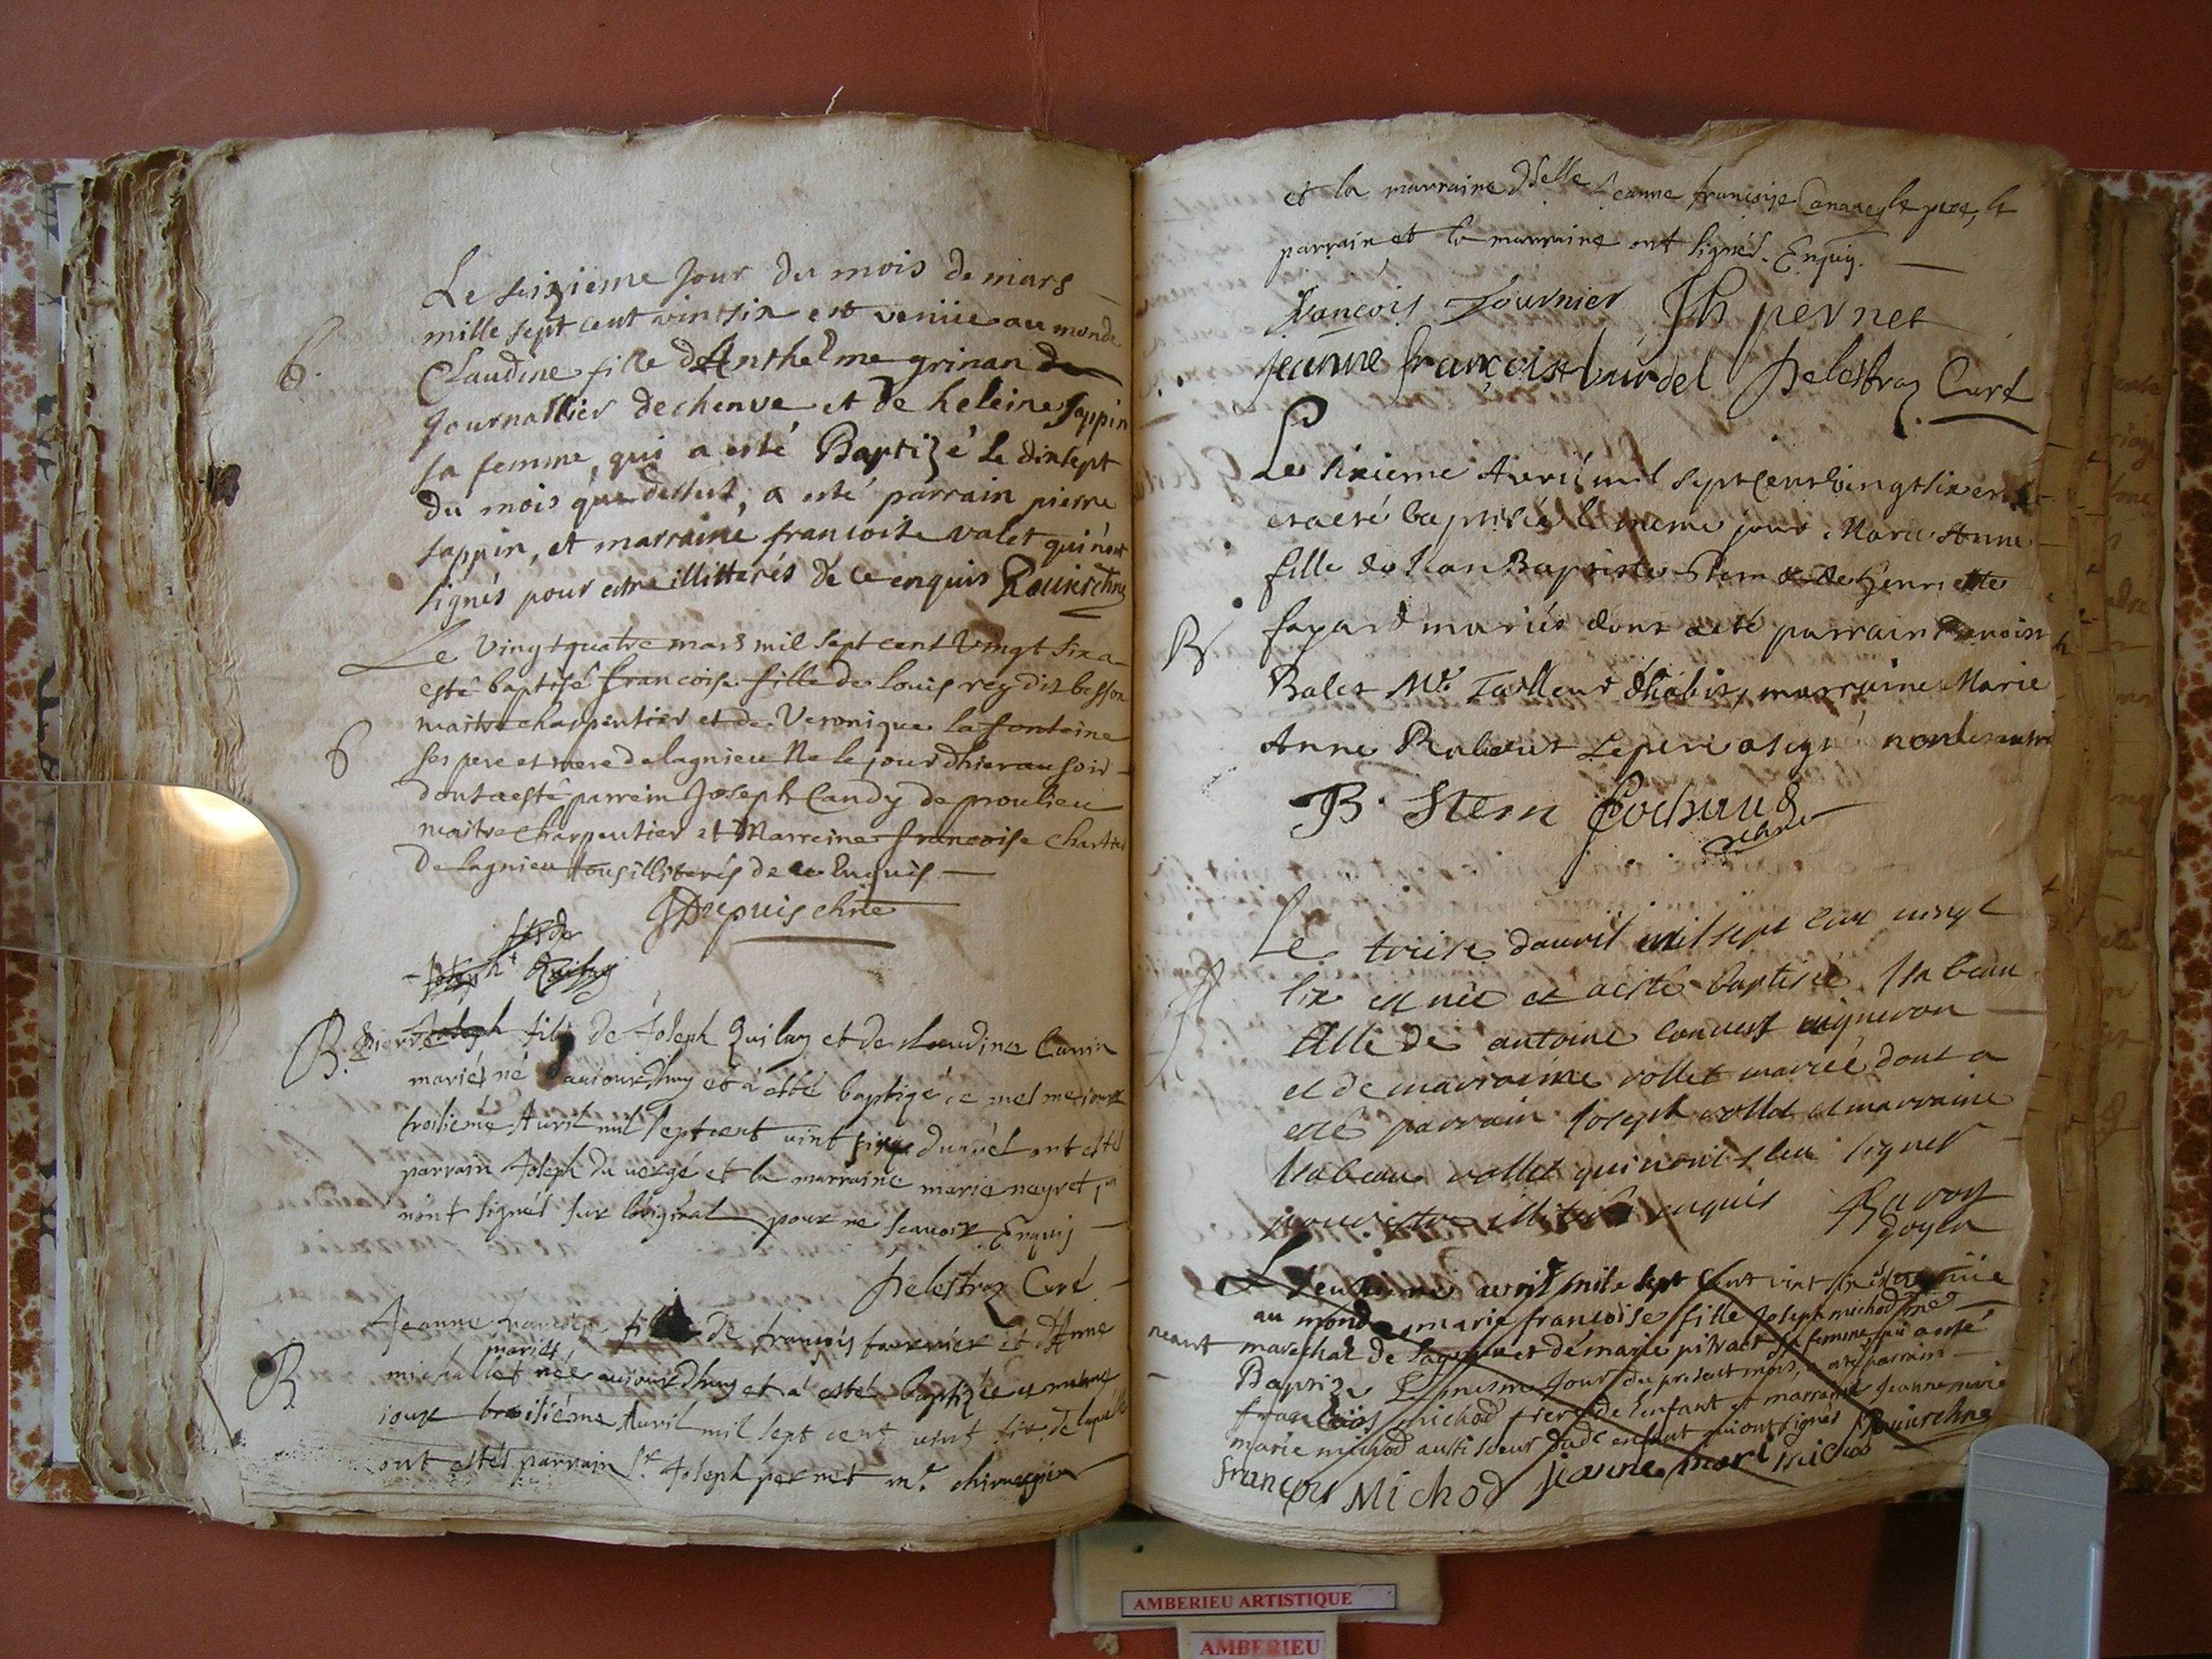 Le seizieme Jour du mois de mars
mille sept cent vintsix est veniie au monde
6.
Claudine fille d'Anthelme grinan de
Journallier dechenve et de heleine sappin
sa femme, qui a esté Baptizé le dixsept
du mois que dessus, a esté parrain pierre
sappin, et marraine francoise valet qui n'ont
signés pour estre illitterés de ce enquis
Le Vingt quatre mars mil sept cent Vingt six a
esté baptisé francoise fille de Louis rey dit besson
maitre charpentier et de Veronique lafontaine
6
ses pere et mere de lagnieu Ne le jour dhier au soir
dont a esté parrein Joseph Candy de proulieu
maitre charpentier et Marreine francoise
De lagnieu tous illiterés de ce Enquis
Dupuis
B.
pierre Joseph fils de Joseph Quilny et de claudine
mariés né aujourdhuy et a esté baptizé ce mesme jour
troisieme Avril mil sept cent vint six duquel ont estés
parrain Joseph du vergé et la marraine marie neyret
nont signés sur l'original pour ne scavoir Enquis
Delestraz Curé
Jeanne francoise fille de françois fournier et d'Anne
mariés
B.
michallet née aujourdhuy et a esté baptizée ce mesme
jour troisiéme Avril mil sept cent vint six de laquelle
ont estés parrain Sr Joseph pernet mr. chirurgien
et la marraine dselle Jeanne francoise le pere, le
parrain et la marraine ont signés. Enquis.
françois Fournier Jh pernet
jeanne françoise Delestraz Curé
Le sixieme Avril mil sept cent vingt six est née
et a eté baptisée le meme jour Marie Anne
fille de Jean Baptiste Stem & de Henriette
B.
fayard mariés dont a eté parrain Benoist
Balet Me. Tailleur d'habit, marraine Marie
Anne le pere a signé non les autres
B. Stem Cochaud
Le treise davril mil sept cent vingt
six est née et a esté baptisée Isabeau
fille de antoine convert vigneron
et de marraine vollet mariée dont a
esté parrain Joseph vollet et marraine
Isabeau vollet qui n'ont sceu signer
pour estre illiterés enquis Ravoy
doyen
Le avril mile sept cent vint six est veniie
au monde marie francoise fille Joseph michod me
neant
marechal de lagnieu et de marie pitract sa femme qui a esté
Baptize Le mesme Jour du present mois, a esté parrain
francois michod frere de l'enfant et marraine Jeanne marie
marie michod aussi soeur dudt enfant qui ont signés
françois Michod jeanne mari michod
AMBERIEU ARTISTIQUE
AMBERIEU